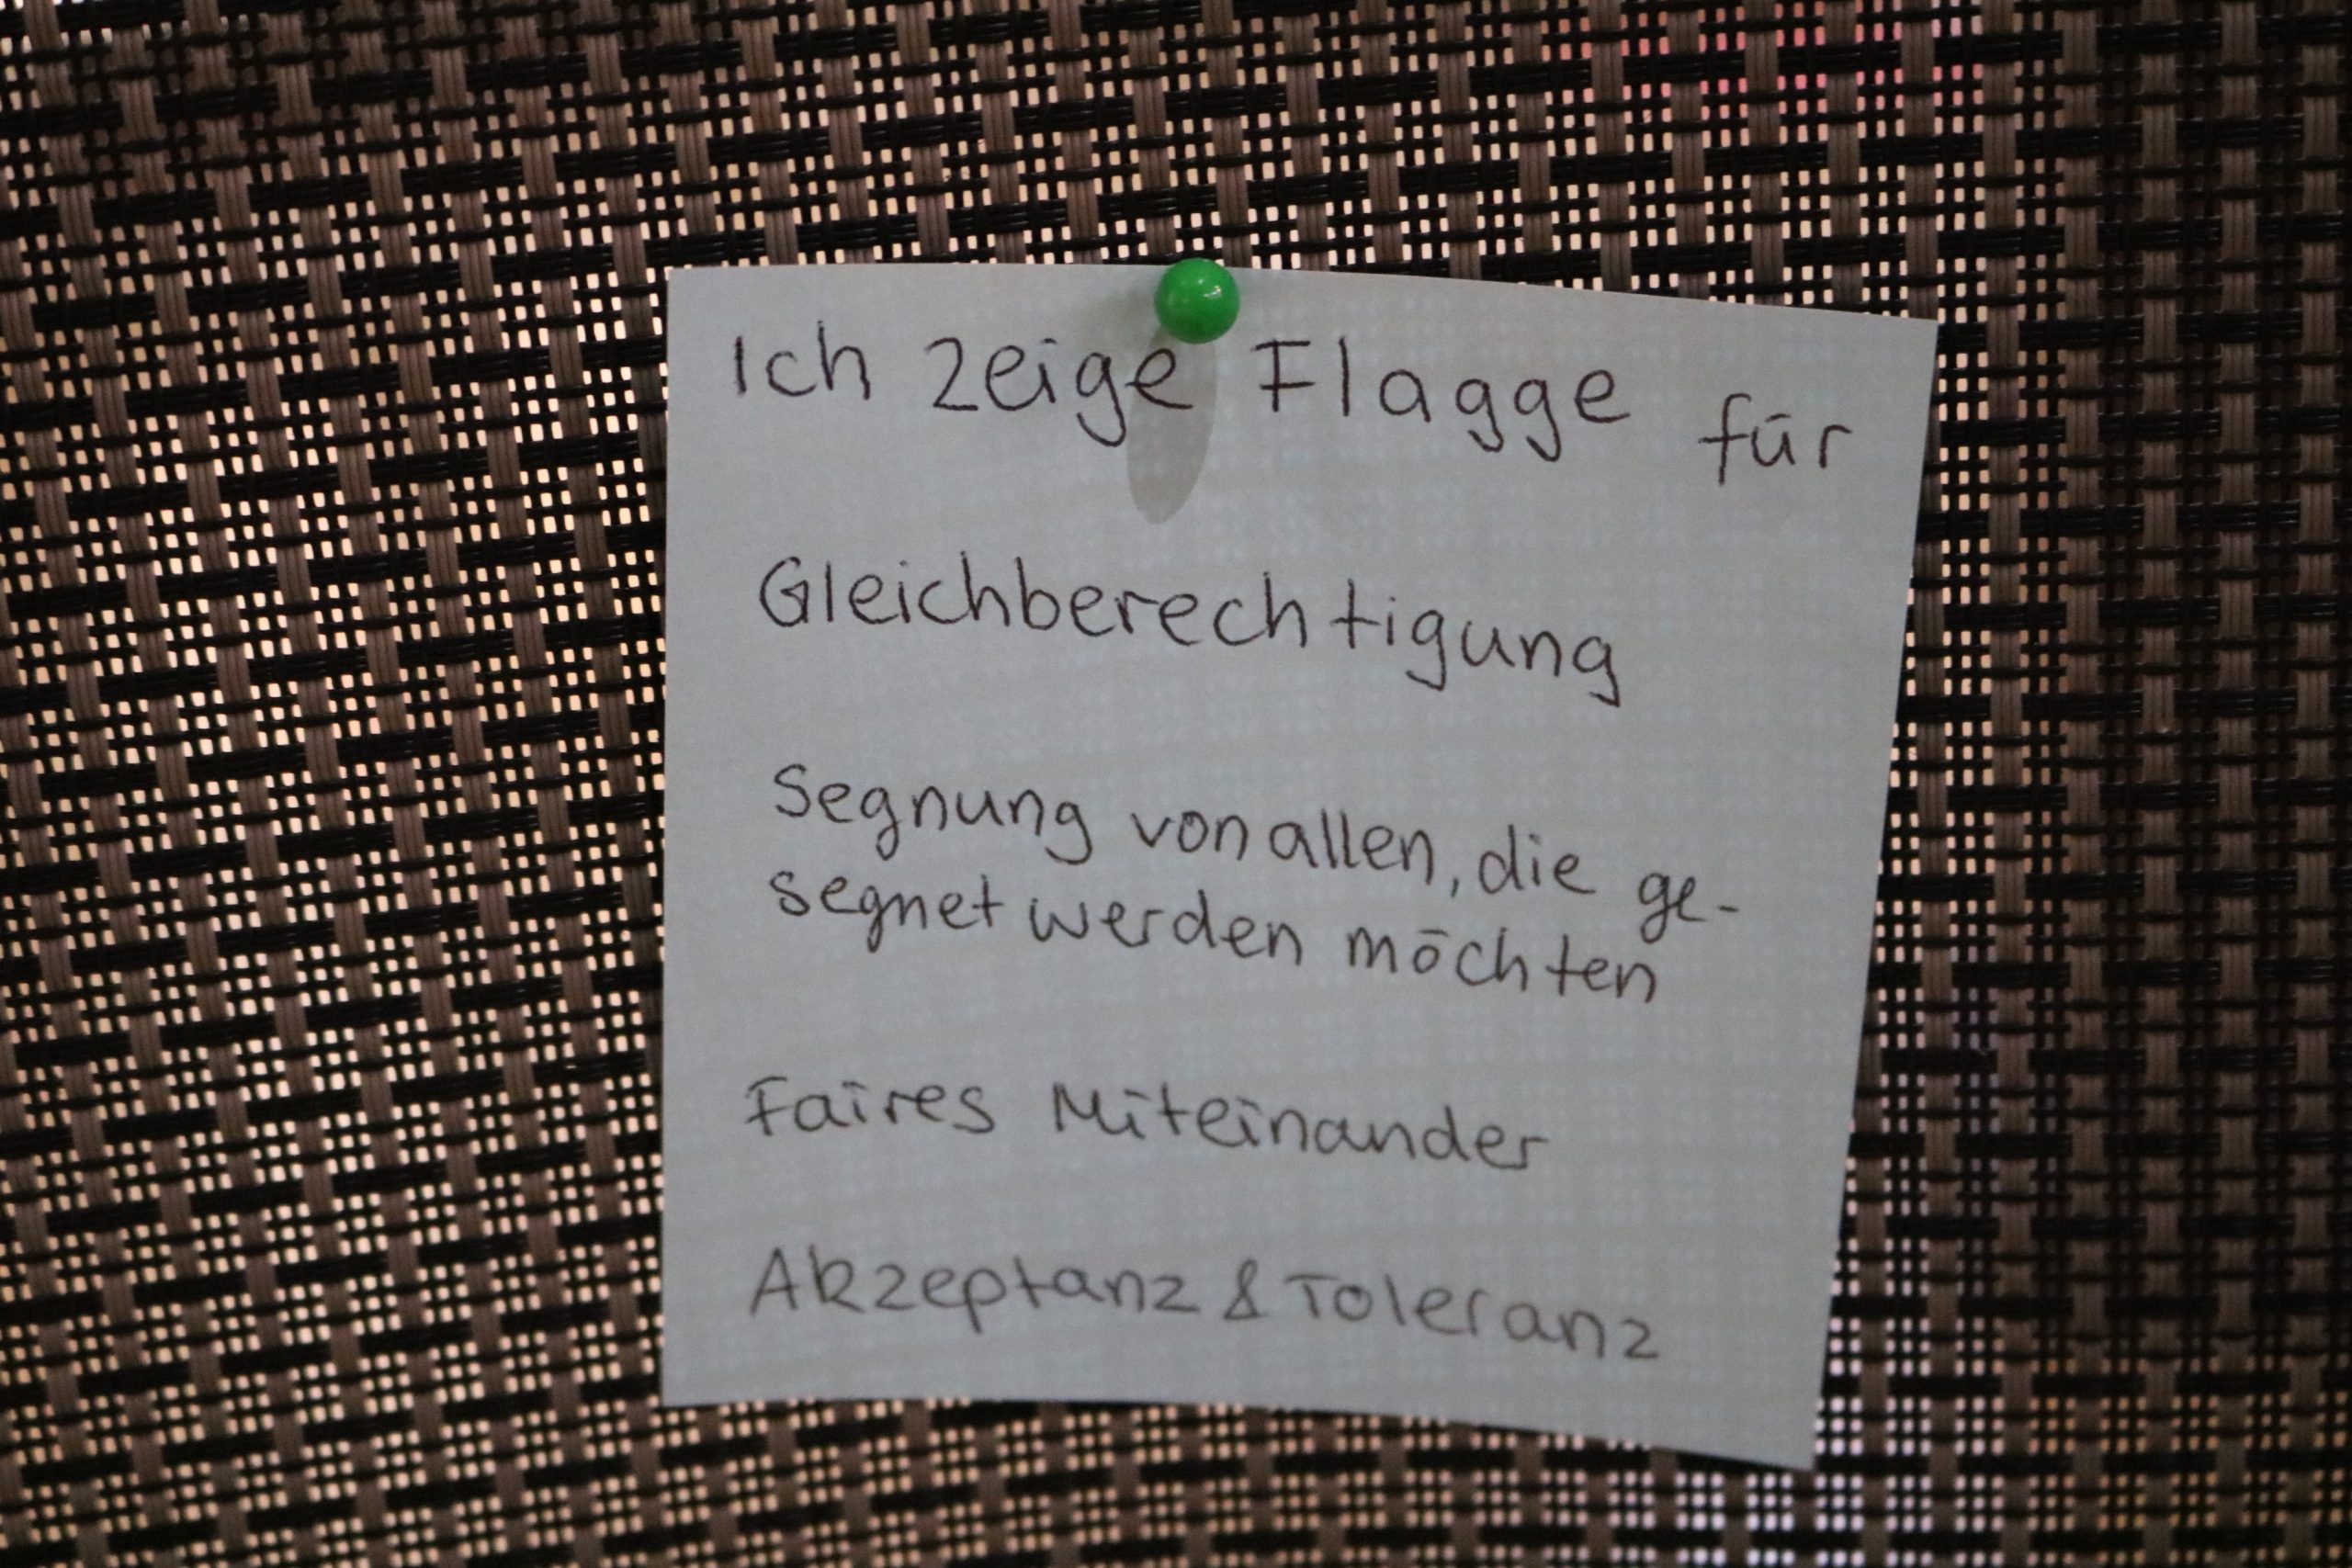 Ich zeige Flagge für
Gleichberechtigung
Segnung von allen, die ge-
segnet werden möchten
Faires Miteinander
Akzeptanz & Toleranz